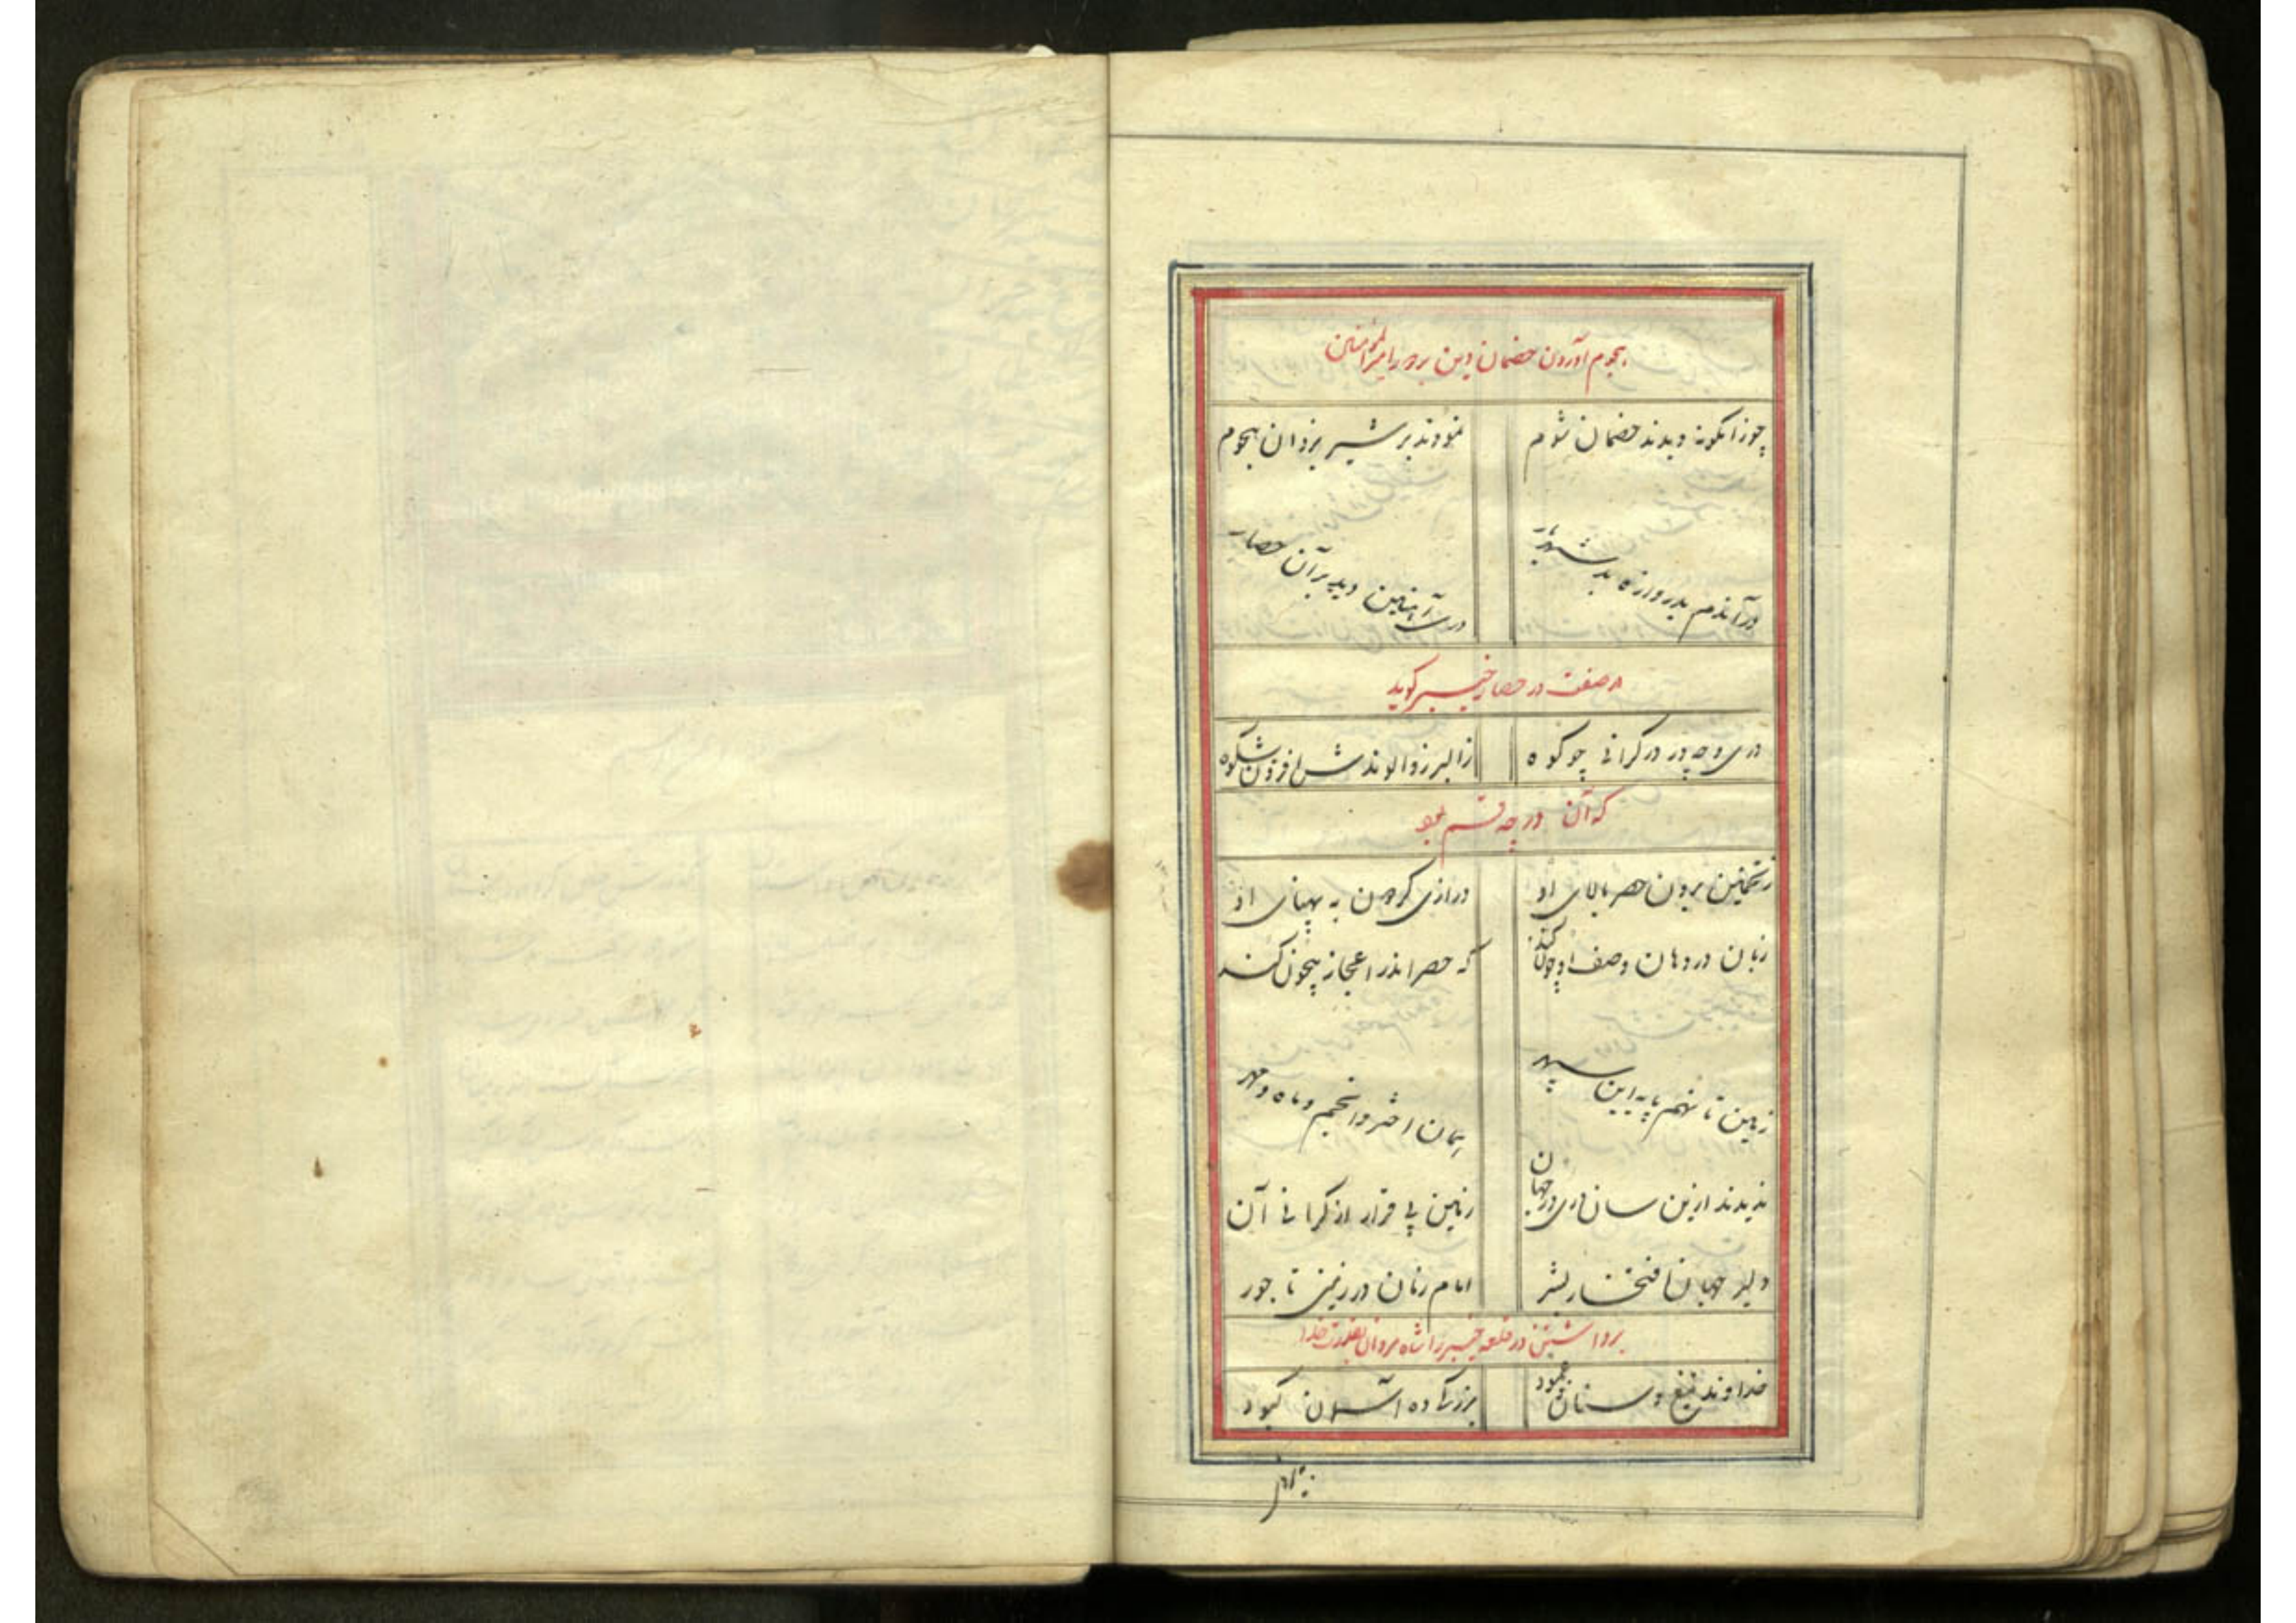 هجوم آوردن خصمان دین بر امیرالمؤمنین
چو زانگونه دیدند خصمان شوم نمودند بر شیر یزدان هجوم
درآندم بدروازه بد شهریار دری آهنین دید بر آن حصار
در صفت در حصار خیبر گوید
دری و چه در در گرانی چو کوه ز البرز و الوندش افزون شکوه
که آن در چه قسم بود
ز تخمین برون حصر بالای او درازی گروگن به پهنای او
زبان در دهان وصف او چون کند که حصر اندر اعجاز بیچون کند
زمین تا نهم پایه این سپهر همان اختر و انجم و ماه و مهر
ندیدند ازین سان دری در جهان زمین بی قرار از گرانی آن
دلیر جهان افتخار بشر امام زمان در زمین تاجور
برداشتن در قلعه خیبر را شاه مردان بقدرت خدا
خداوند تیغ و سنان و عمود آسمان کبود